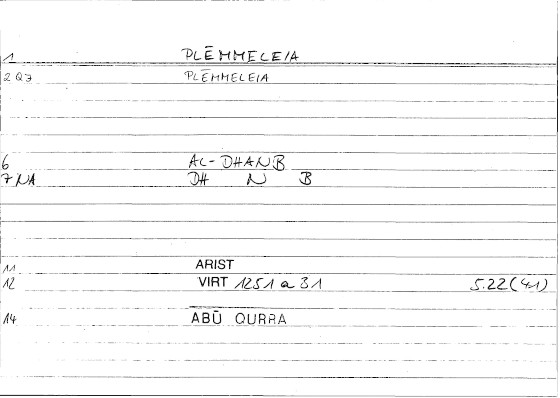 1 PLĒMMELEIA
2 Q7 PLĒMMELEIA
6 AL-DHANB
7 NA DH N B
11 ARIST
12 VIRT 1251 a 31 5.22 (41)
14 ABŪ QURRA